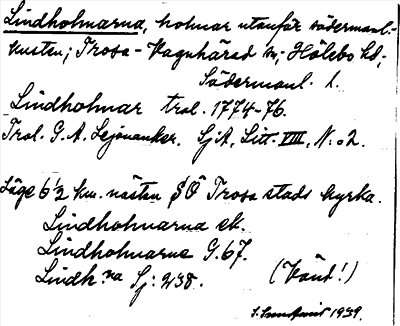 Lindholmarna, holmar utanför södermanl.-
kusten; Trosa-Vagnhärad sn; Hölebo hd,
Södermanl. l.
Lindholmar tral. 1774-76.
Tral. G. A. Lejonanker. SjA, Litt. VIII, N:o 2.
Läge 6½ km. nästen SÖ Trosa stads kyrka.
Lindholmarna ek.
Lindholmarna G. 67.
Lindh:na Sj: 238.
(Vänd!)
1939.